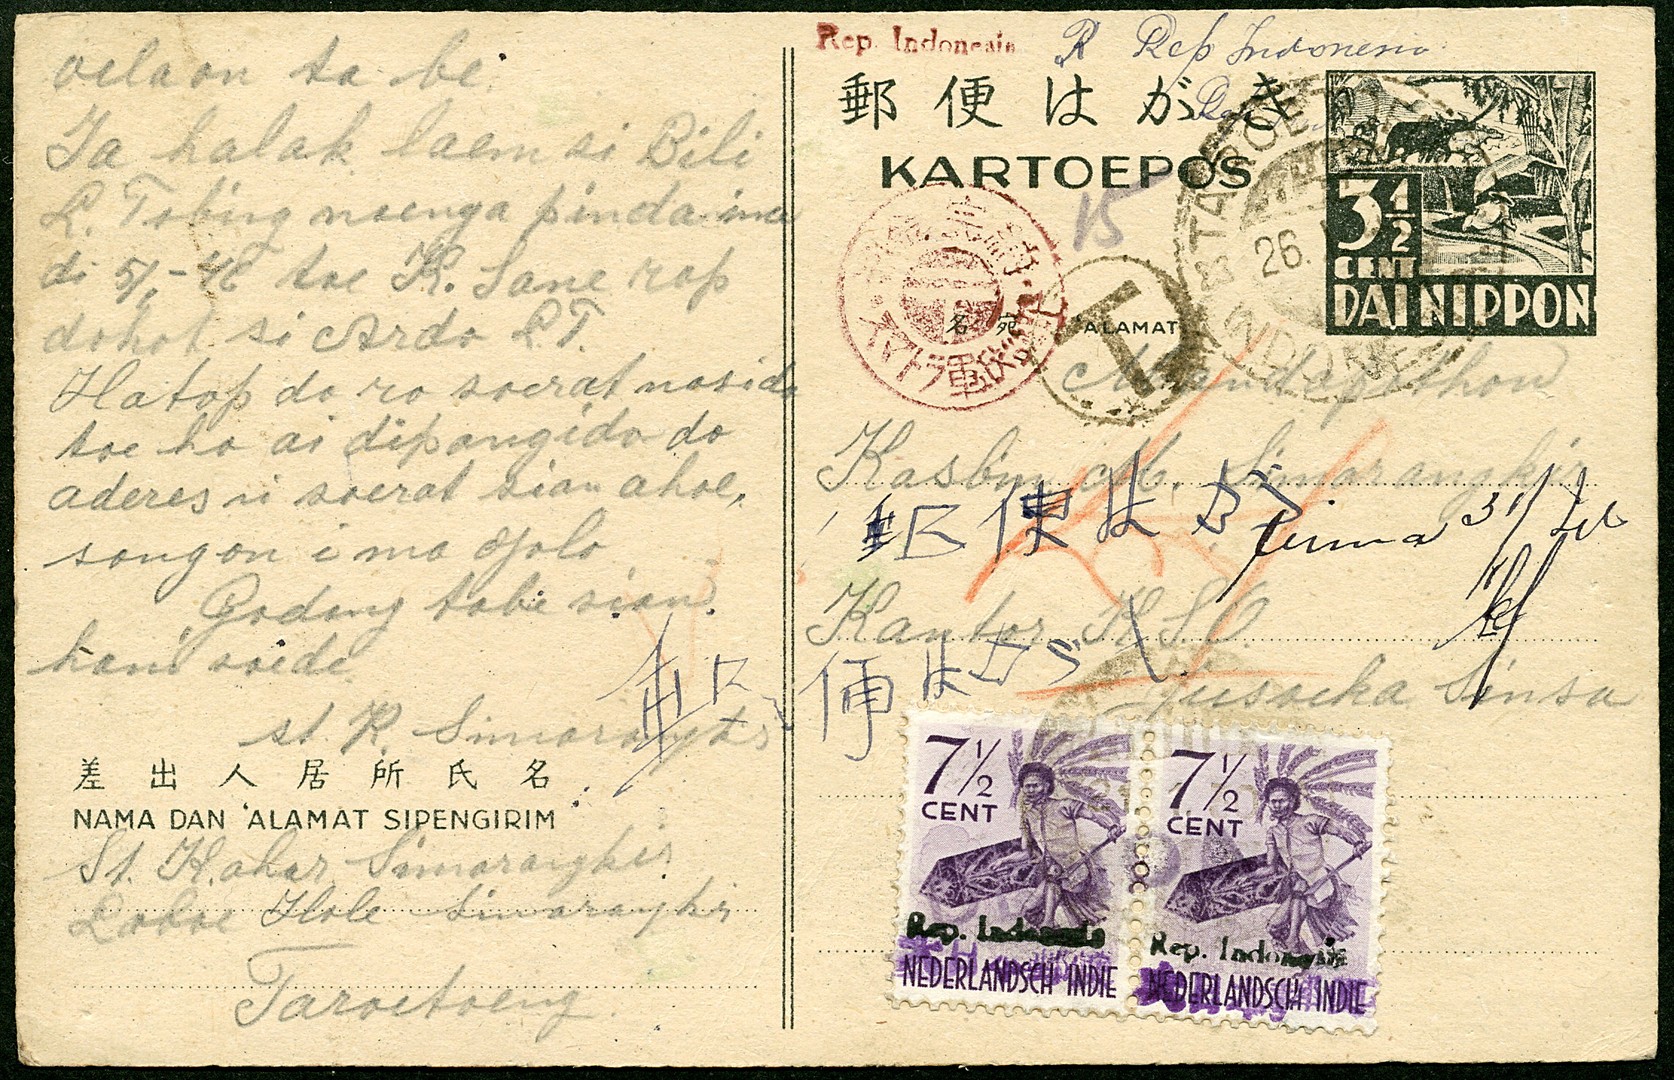 oelaon ta be.
Ia halak laem si Bili
L. Tobing noenga pinda ma
di 5/, - 46 toe K. Sane rap
dohot si Ardo L.T.
Hatop do ro soerat nasida
toe ho ai dipangido do
aderes ni soerat sian ahoe,
songon i ma djolo
Godang tabe sian
hami soede.
st. K. Simarangkir
差出人居所氏名
NAMA DAN 'ALAMAT SIPENGIRIM
St. Simarangkir
Loboe Hole Simarangkir
Taroetoeng
Rep. Indonesia
R Rep Indonesia
郵便はがき
KARTOEPOS
15
3 1/2
CENT
DAI NIPPON
TAROET
26.
スマトラ軍政
宛名
'ALAMAT
T
Kasbin M. Simarangkir
郵便はが
terima 31/
Kantor K.S.O.
郵便はがき
7 1/2
CENT
Rep. Indonesia
NEDERLANDSCH INDIE
7 1/2
CENT
Rep. Indonesia
NEDERLANDSCH INDIE